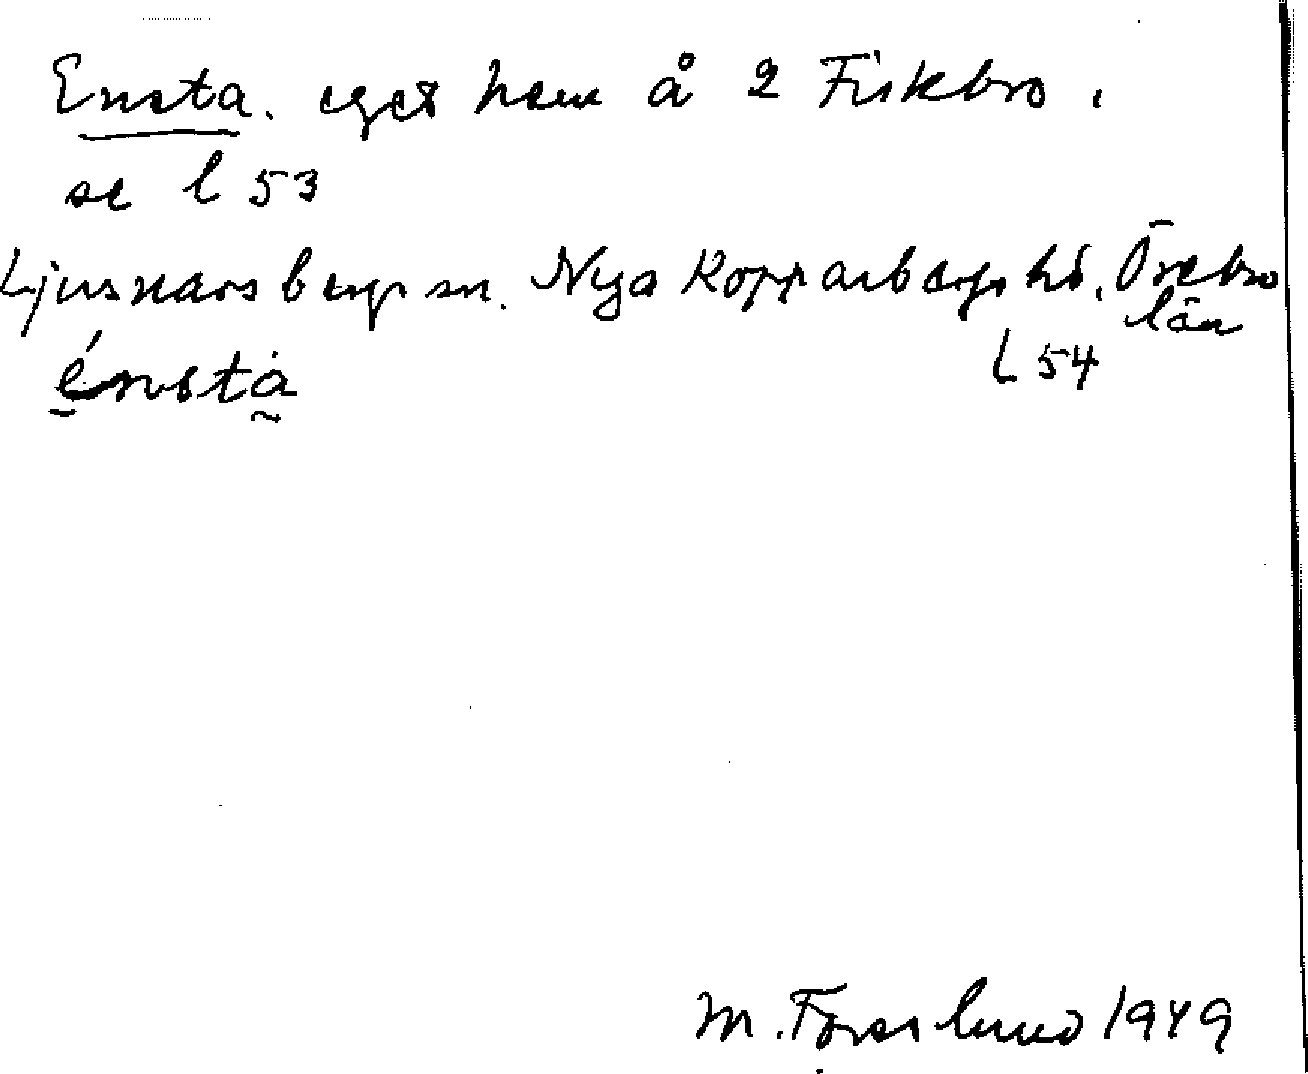 Ensta. eget hem å 2 Fiskbro.
se l 53
Ljusnarsbergs sn. Nya Kopparbergs hd. Örebro län
énsta
l 54
M. Forslund 1949